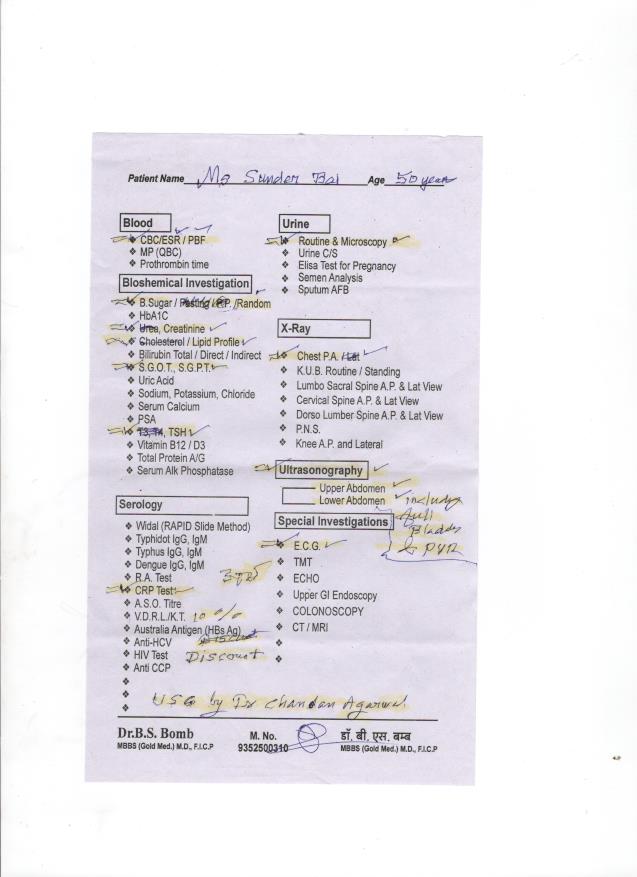 Patient Name Mrs Sunder Bai Age 50 years
Blood
❖ CBC/ESR / PBF
❖ MP (QBC)
❖ Prothrombin time
Bloshemical Investigation
❖ B.Sugar / Fasting / P.P. /Random
❖ HbA1C
❖ Urea, Creatinine
❖ Cholesterol / Lipid Profile
❖ Bilirubin Total / Direct / Indirect
❖ S.G.O.T., S.G.P.T.
❖ Uric Acid
❖ Sodium, Potassium, Chloride
❖ Serum Calcium
❖ PSA
❖ T3, T4, TSH
❖ Vitamin B12 / D3
❖ Total Protein A/G
❖ Serum Alk Phosphatase
Serology
❖ Widal (RAPID Slide Method)
❖ Typhidot IgG, IgM
❖ Typhus IgG, IgM
❖ Dengue IgG, IgM
❖ R.A. Test
❖ CRP Test
❖ A.S.O. Titre
❖ V.D.R.L./K.T. 10 %
❖ Australia Antigen (HBs Ag)
❖ Anti-HCV
❖ HIV Test Discount
❖ Anti CCP
Urine
❖ Routine & Microscopy
❖ Urine C/S
❖ Elisa Test for Pregnancy
❖ Semen Analysis
❖ Sputum AFB
X-Ray
❖ Chest P.A. / Lat
❖ K.U.B. Routine / Standing
❖ Lumbo Sacral Spine A.P. & Lat View
❖ Cervical Spine A.P. & Lat View
❖ Dorso Lumber Spine A.P. & Lat View
❖ P.N.S.
❖ Knee A.P. and Lateral
Ultrasonography
Upper Abdomen
Lower Abdomen includes
full
Bladder
& PVR
Special Investigations
❖ E.C.G.
❖ TMT
❖ ECHO
❖ Upper GI Endoscopy
❖ COLONOSCOPY
❖ CT / MRI
USG by Dr Chandan Agarwal
Dr.B.S. Bomb M. No. डॉ. बी. एस. बम्ब
MBBS (Gold Med.) M.D., F.I.C.P 9352500310 MBBS (Gold Med.) M.D., F.I.C.P